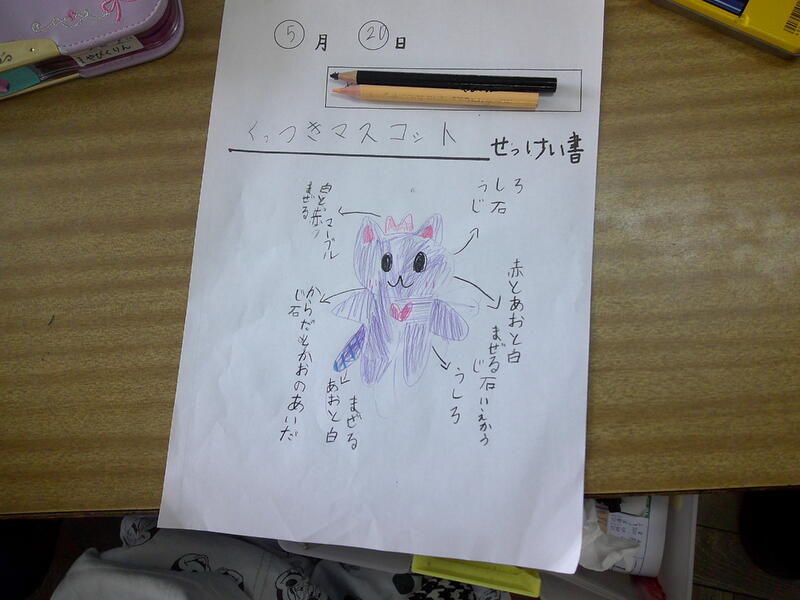 5月 20日
くっつきマスコット せっけい書
うしろ
じ石
白と赤
まぜる
マーブル
赤とあおと白
まぜる
じ石
からだとかおのあいだ
じ石
うしろ
まぜる
あおと白